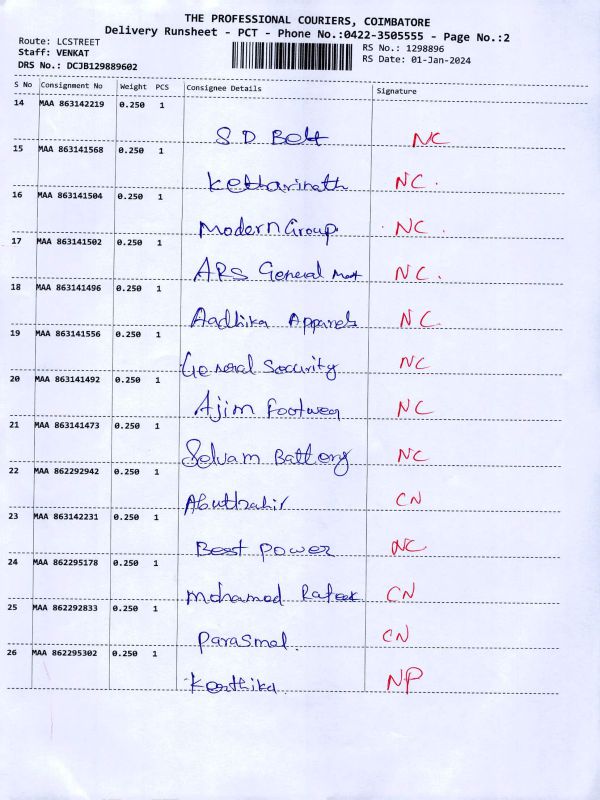 THE PROFESSIONAL COURIERS, COIMBATORE
Delivery Runsheet - PCT - Phone No.:0422-3505555 - Page No.:2
Route: LCSTREET
Staff: VENKAT
DRS No.: DCJB129889602
RS No.: 1298896
RS Date: 01-Jan-2024
S No Consignment No Weight PCS Consignee Details Signature
14 MAA 863142219 0.250 1
S D Belt NC
15 MAA 863141568 0.250 1
Ketharinath NC.
16 MAA 863141504 0.250 1
Modern Group. NC.
17 MAA 863141502 0.250 1
ARS General Mat NC.
18 MAA 863141496 0.250 1
Aadhika Apparels NC.
19 MAA 863141556 0.250 1
General Security NC
20 MAA 863141492 0.250 1
Ajim Footwear NC
21 MAA 863141473 0.250 1
Selvam Battery NC
22 MAA 862292942 0.250 1
Abuthahir CN
23 MAA 863142231 0.250 1
Best Power NC
24 MAA 862295178 0.250 1
Mohamed Rafeek CN
25 MAA 862292833 0.250 1
Parasmal. CN
26 MAA 862295302 0.250 1
Keerthika. NP